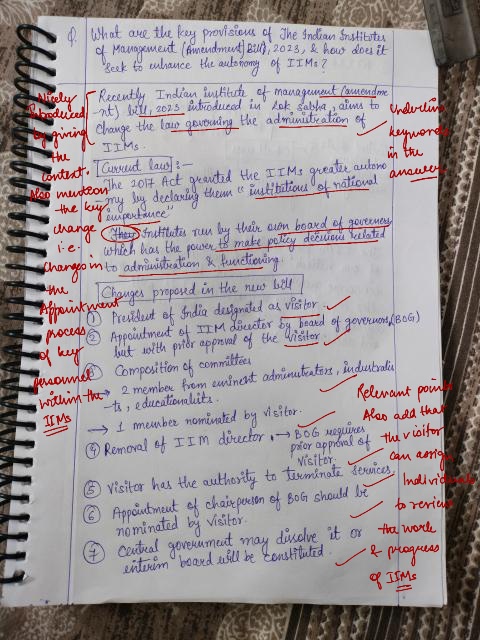 Q. What are the key provisions of The Indian Institutes
of Management (Amendment) Bill, 2023, & how does it
seek to enhance the autonomy of IIMs?
Recently Indian institute of management (amendme
-nt) bill, 2023 introduced in Lok sabha, aims to
change the law governing the administration of
IIMs.
Current law:-
The 2017 Act granted the IIMs greater autono
-my by declaring them "institutions of national
importance"
Their Institutes run by their own board of governers
which has the power to make policy decisions related
to administration & functioning.
Changes proposed in the new bill
① President of India designated as visitor.
② Appointment of IIM director by board of governors (BOG)
but with prior approval of the visitor.
③ Composition of committees
→ 2 member from eminent administrators, industrialis
-ts, educationalists.
→ 1 member nominated by visitor.
④ Removal of IIM director. → BOG requires
prior approval of
visitor.
⑤ Visitor has the authority to terminate services.
⑥ Appointment of chairperson of BOG should be
nominated by visitor.
⑦ Central government may disolve it or
interim board will be constituted.
Nicely
Introduced
by giving
the
context.
Also mention
the key
change
i.e.
Changes in
the
Appointment
process
of key
personnel
within the
IIMs
Underline
keywords
in the
answer
Relevant points
Also add that
the visitor
can assign
Individuals
to review
the work
& progress
of IIMs